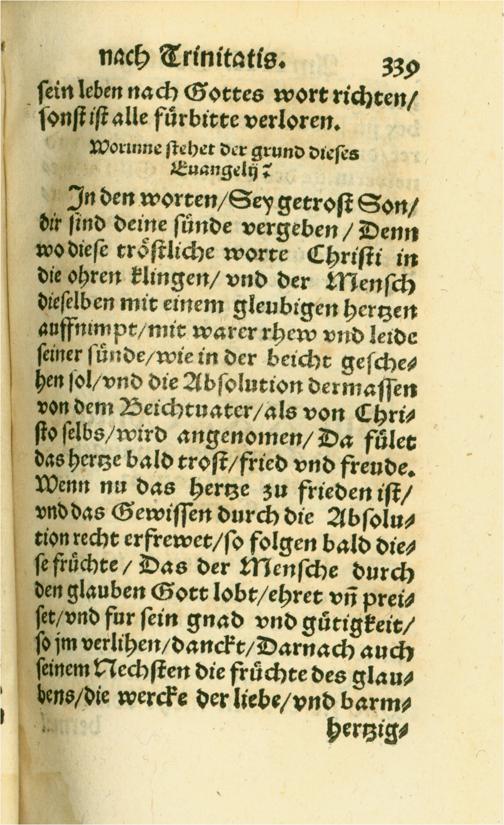 nach Trinitatis. 339
sein leben nach Gottes wort richten/
sonst ist alle fürbitte verloren.
Worinne stehet der grund dieses
Euangelij?
In den worten/Sey getrost Son/
dir sind deine sünde vergeben/Denn
wo diese tröstliche worte Christi in
die ohren klingen/vnd der Mensch
dieselben mit einem gleubigen hertzen
auffnimpt/mit warer rhew vnd leide
seiner sünde/wie in der beicht gesche⸗
hen sol/vnd die Absolution dermassen
von dem Beichtuater/als von Chri⸗
sto selbs/wird angenomen/Da fület
das hertze bald trost/fried vnd freude.
Wenn nu das hertze zu frieden ist/
vnd das Gewissen durch die Absolu⸗
tion recht erfrewet/so folgen bald die⸗
se früchte/Das der Mensche durch
den glauben Gott lobt/ehret vn̄ prei⸗
set/vnd fur sein gnad vnd gütigkeit/
so jm verlihen/danckt/Darnach auch
seinem Nechsten die früchte des glau⸗
bens/die wercke der liebe/vnd barm⸗
hertzig⸗